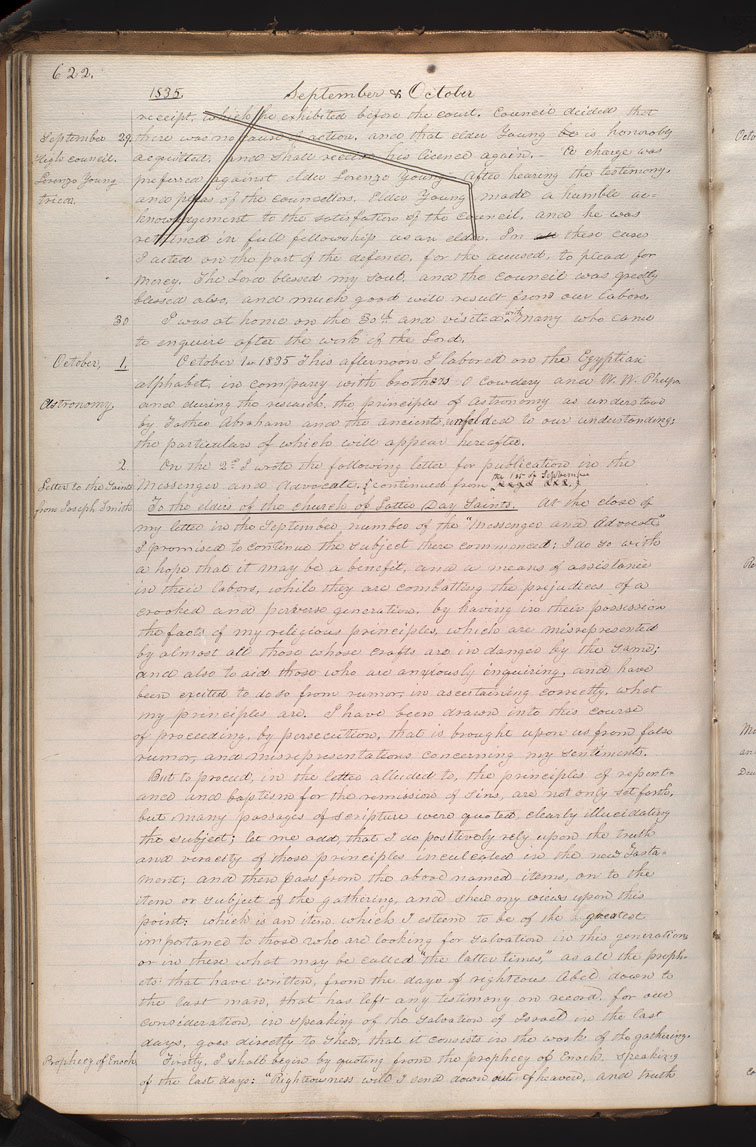 622.
1835. September & October
receipt, which he exhibited before the court. Council decided that
September 29. there was no cause of action, and that elder Young be is honoraby
High council. acquitted, and shall receive his licence again. – A charge was
Lorenzo Young preferred against elder Lorenzo Young. After hearing the testimony,
tried. and pleas of the councellors, Elder Young made a humble ac-
knowledgement to the satisfaction of the Council, and he was
retained in full fellowship as an elder. In all these cases
I acted on the part of the defence, for the accused, to plead for
mercy. The Lord blessed my soul, and the council was greatly
blessed also, and much good will result from our labors.
30 I was at home on the 30th and visited with many who came
to enquire after the work of the Lord.
October, 1. October 1st 1835 This afternoon I labored on the Egyptian
alphabet, in company with brothers O Cowdery and W. W. Phelps
Astronomy, and during the research, the principles of astronomy as understood
by Father Abraham and the ancients, unfolded to our understanding;
the particulars of which will appear hereafter.
2 On the 2d I wrote the following letter for publication in the
Letter to the Saints Messenger and Advocate. continued from the 1st of September
from Joseph Smith To the elders of the church of Latter Day Saints. At the close of
my letter in the September number of the "Messenger and Advocate"
I promised to continue the subject there commenced; I do so with
a hope that it may be a benefit, and a means of assistance
in their labors, while they are combatting the prejudices of a
crooked and perverse generation, by having in their possession
the facts of my religious principles, which are misrepresented
by almost all those whose crafts are in danger by the same;
and also to aid those who are anxiously inquiring, and have
been excited to do so from rumor, in ascertaining correctly, what
my principles are. I have been drawn into this course
of proceeding, by persecution, that is brought upon us from false
rumor, and misrepresentations concerning my sentiments.
But to proceed, in the letter alluded to, the principles of repent-
ance and baptism for the remission of sins, are not only set forth,
but many passages of scripture were quoted, clearly illucidating
the subject; let me add, that I do positively rely upon the truth
and veracity of those principles inculcated in the new Testa-
ment; and then pass from the above named items, on to the
item or subject of the gathering, and shew my views upon this
point: which is an item which I esteem to be of the greatest
importance to those who are looking for salvation in this generation
or in these what may be called "the latter times," as all the proph-
ets that have written, from the days of righteous Abel down to
the last man, that has left any testimony on record, for our
consideration, in speaking of the salvation of Israel in the last
days, goes directly to shew, that it consists in the work of the gathering.
Prophecy of Enoch. Firstly, I shall begin by quoting from the prophecy of Enoch, speaking
of the last days: "Righteousness will I send down out of heaven, and truth